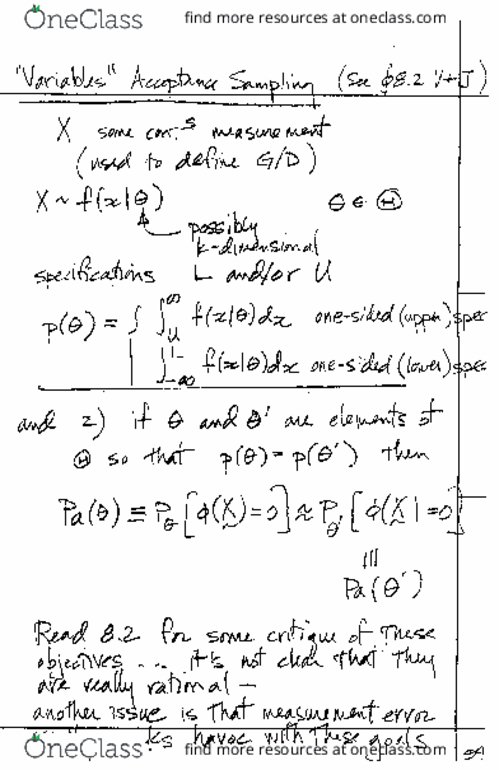 OneClass
find more resources at oneclass.com
"Variables" Acceptance Sampling (See §8.2 V+J)
X some con.s measurement
(used to define G/D)
X ~ f(x|θ) θ ∈ Θ
possibly
k-dimensional
specifications L and/or U
p(θ) = { ∫_U^∞ f(x|θ)dx one-sided (upper) spec
∫_{-∞}^L f(x|θ)dx one-sided (lower) spec
and 2) if θ and θ' are elements of
Θ so that p(θ) = p(θ') then
Pa(θ) ≡ P_θ[φ(X)=0] ≈ P_θ'[φ(X)=0]
|||
Pa(θ')
Read 8.2 for some critique of These
objectives ... it's not clear that They
are really rational —
another issue is that measurement error
havoc with These goals
OneClass
find more resources at oneclass.com